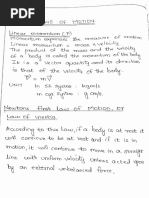 LAWS OF MOTION
Linear momentum (P)
Momentum expresses the measure of motion.
Linear momentum = mass × velocity
The product of the mass and the velocity
of a body is called the momentum of the body.
It is a vector quantity and its direction
is that of the velocity of the body.
P = mv
Unit In SI system : kg m/s
in cgs system : g cm/s
Newtons first law of Motion, or
Law of Inertia.
According to this law, if a body is at rest it
will continue to be at rest and if it is in
motion, it will continue to move in a straight
line with uniform velocity unless acted upon
by an external unbalanced force.